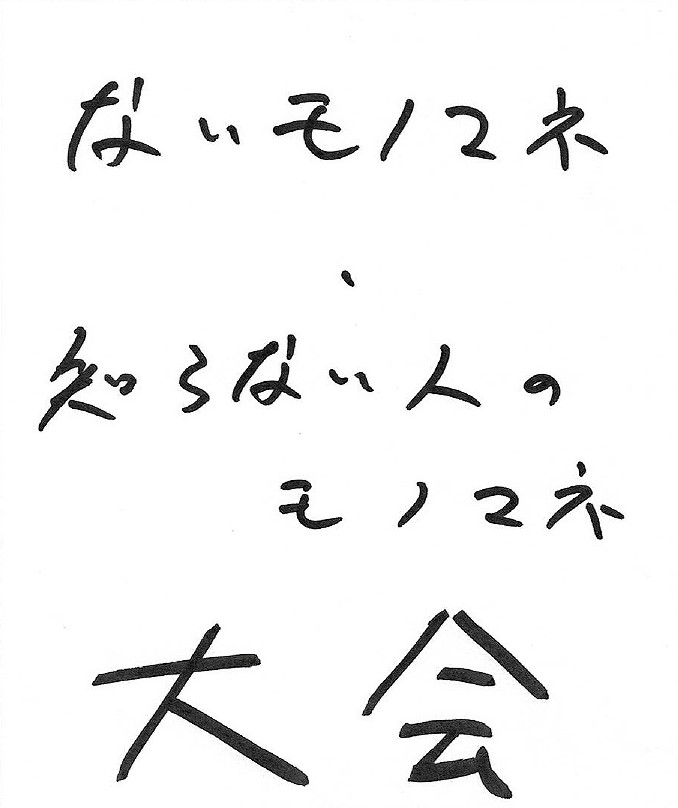 ないモノマネ
・
知らない人の
モノマネ
大会